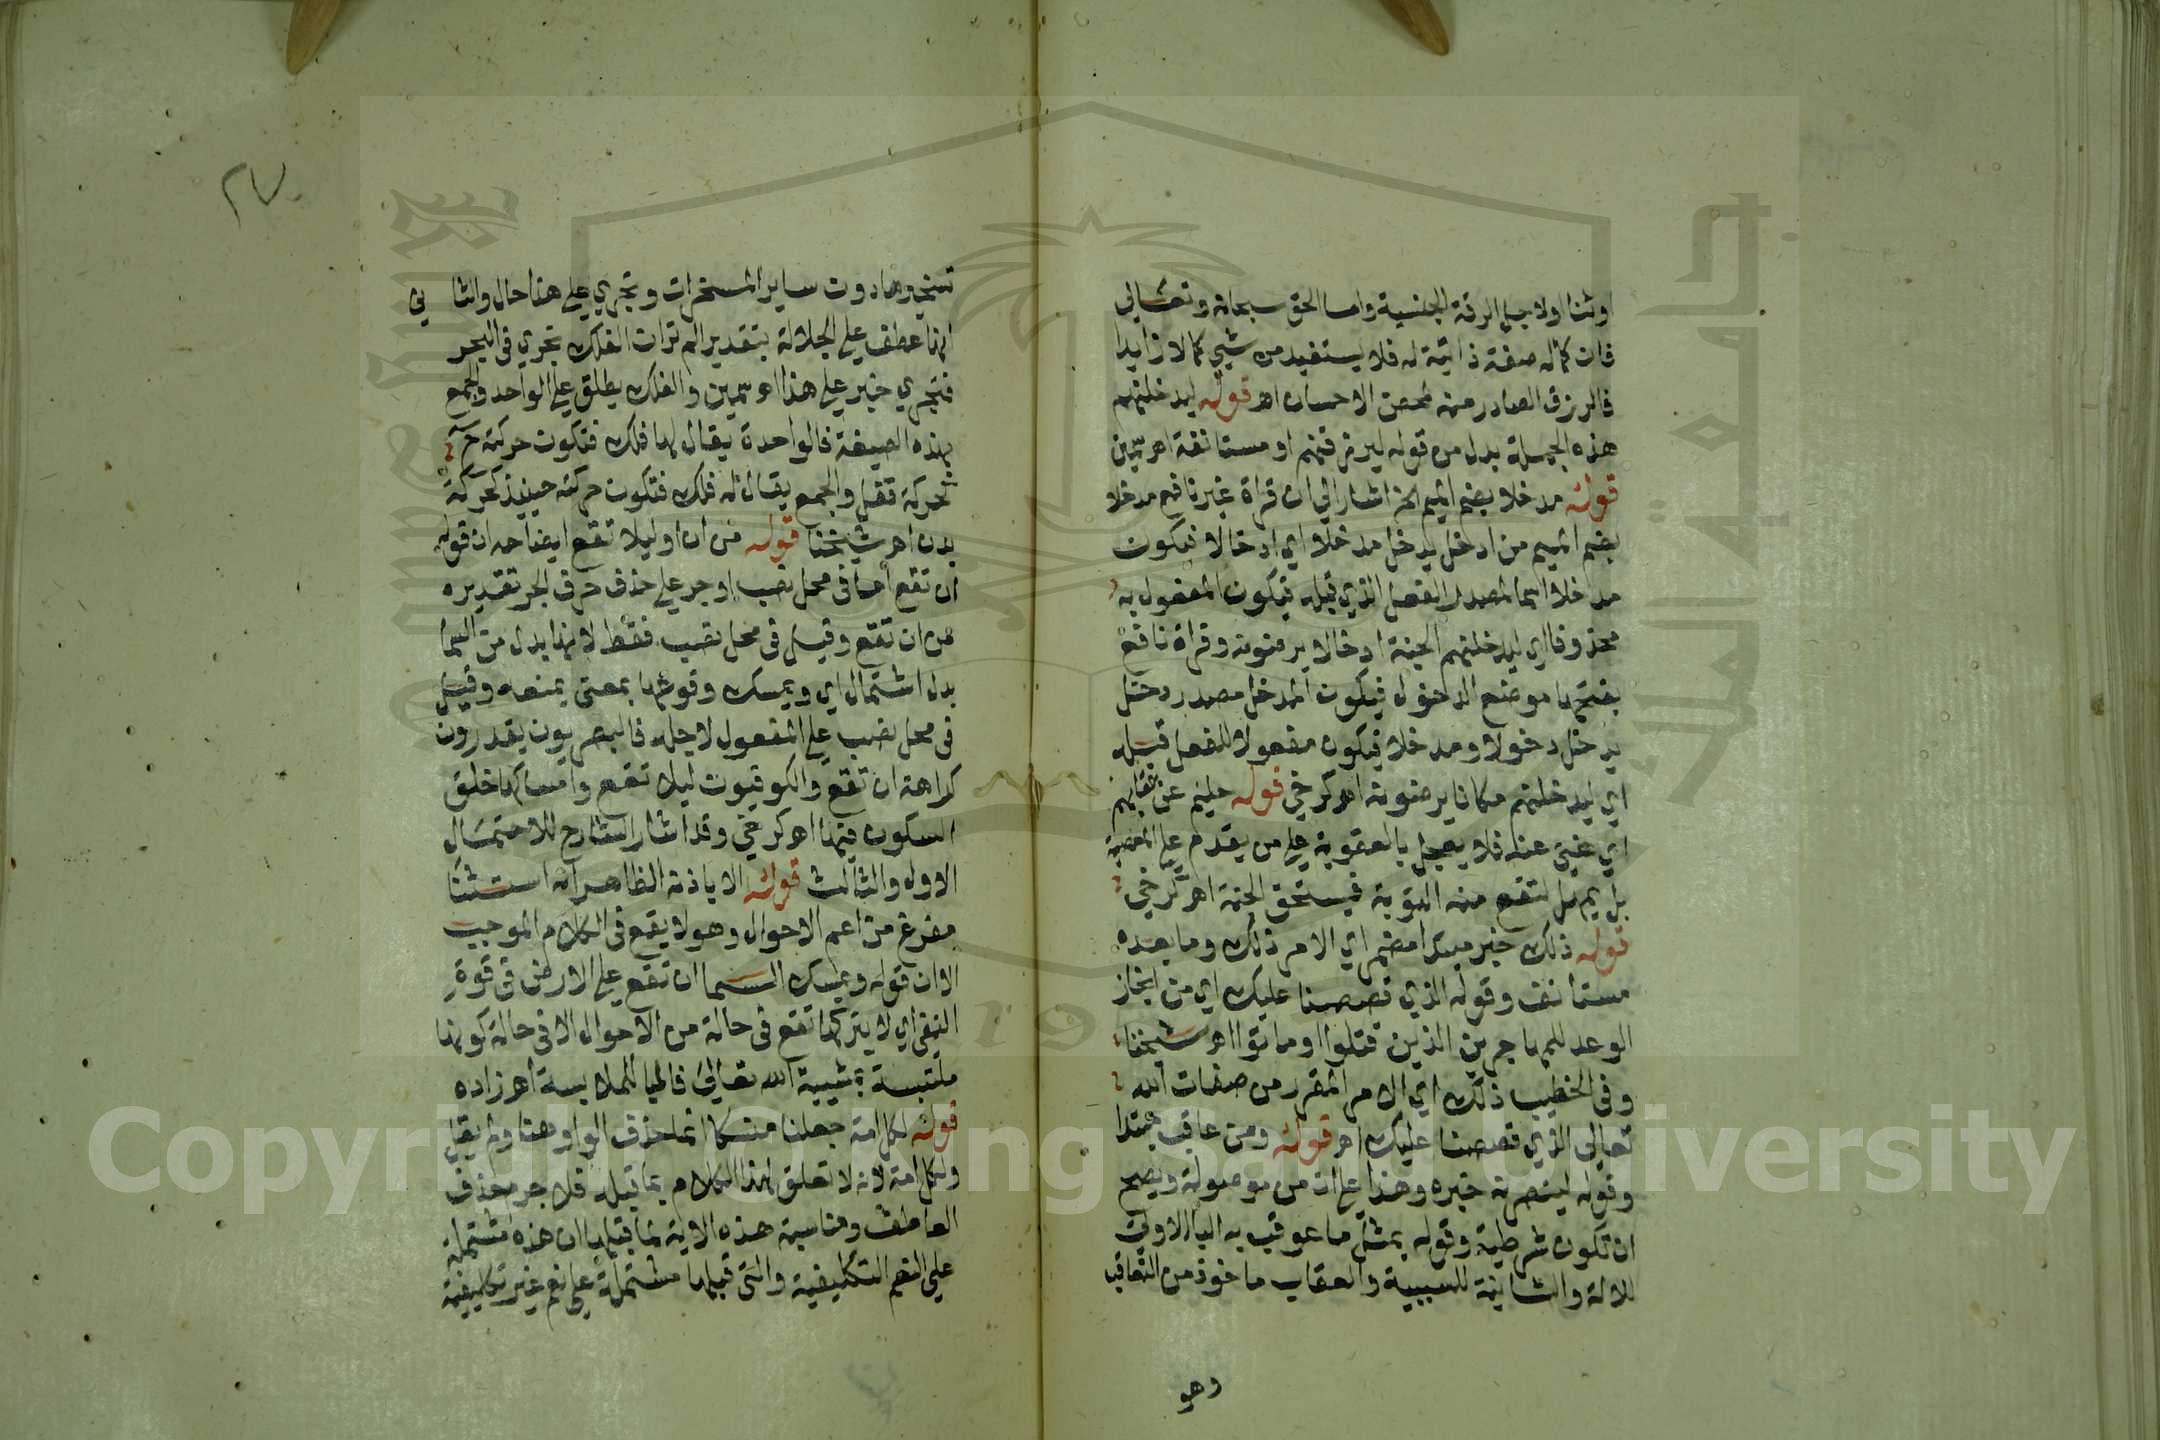 اوثنا اولاجل الرقة الجنسية واما الحق سبحانه وتعالى
فان كماله صفة ذاتية له فلا يستفيد من شي كمالا زايدا
فالرزق الصادر منه لمحض الاحسان اهـ قوله ليدخلنهم
هذه الجملة بدل من قوله ليرزقنهم او مستانفة اهـ سمين
قوله مدخلا بضم الميم الخ اشار الى ان قراة غير نافع مدخلا
بضم الميم من ادخل يدخل مدخلا اي ادخالا فيكون
مدخلا اسما لمصدر الفعل الذي قبله فيكون المفعول به
محذوفا اي ليدخلنهم الجنة ادخالا يرضونه وقراة نافع
بفتحها موضع الدخول فيكون المدخل مصدر دخل
يدخل دخولا ومدخلا فيكون مفعولا للفعل قبله
اي ليدخلنهم مكانا يرضونه اهـ كرخي قوله حليم عن عقابهم
اي غني عنه فلا يعجل بالعقوبة على من يقدم على المعصية
بل يمهل لتقع منه التوبة فيستحق الجنة اهـ كرخي
قوله ذلك خبر مبتدا مضمر اي الامر ذلك وما بعده
مستانف وقوله الذي قصصنا عليك اي من انجاز
الوعد للمهاجرين الذين قتلوا او ماتوا اهـ شيخنا
وفي الخطيب ذلك اي الامر المقرر من صفات الله
تعالى الذي قصصنا عليك اهـ قوله ومن عاقب مبتدا
وقوله لينصرنه خبره وهذا على ان من موصولة ويصح
ان تكون شرطية وقوله بمثل ما عوقب به الباء الاولى
للالة والثانية للسببية والعقاب ماخوذ من التعاقب
وهو
٢٧
تسخيرها دون ساير المسخرات وتجري على هذا حال والثاني
انها عطف على الجلالة بتقدير الم تر ان الفلك تجري في البحر
فتجري خبر على هذا اهـ سمين والفلك يطلق على الواحد والجمع
بهذه الصيغة فالواحدة يقال لها فلك فتكون حركته ح
كحركة قفل والجمع يقال له فلك فتكون حركته حينيذ كحركة
بدن اهـ شيخنا قوله من ان او ليلا تقع ايضاحه ان قوله
ان تقع اما في محل نصب او جر على حذف حرف الجر تقديره
من ان تقع وقيل في محل نصب فقط لانها بدل من السما
بدل اشتمال اي ويمسك وقوعها بمعنى يمنعه وقيل
في محل نصب على المفعول لاجله فالبصريون يقدرون
كراهة ان تقع والكوفيون ليلا تقع وامساكها خلق
السكون فيها اهـ كرخي وقد اشار الشارح للاحتمال
الاول والثالث قوله الا باذنه الظاهر انه استثنا
مفرغ من اعم الاحوال وهو لا يقع في الكلام الموجب
الا ان قوله ويمسك السما ان تقع على الارض في قوة
النفي اي لا يتركها تقع في حالة من الاحوال الا في حالة كونها
ملتبسة بمشيية الله تعالى فالبا للملابسة اهـ زاده
قوله لكل امة جعلنا منسكا انما حذف الواو هنا ولم يقل
ولكل امة لانه لا تعلق لهذا الكلام بما قبله فلا جر محذف
العاطف ومناسبة هذه الاية لما قبلها ان هذه مشتملة
على النعم التكليفية والتي قبلها مشتملة على نعم غير تكليفية
Copyright © King Saud University